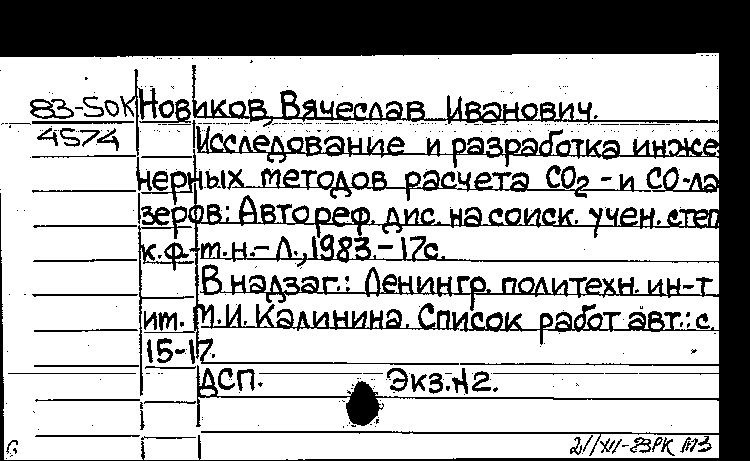 83-5ОК Новиков, Вячеслав Иванович.
4574 Исследование и разработка инже
нерных методов расчета СО2 - и СО-ла
зеров: Автореф. дис. на соиск. учен. степ
к.ф.-т.н.- Л., 1983.- 17с.
В надзаг.: Ленингр. политехн. ин-т
им. М.И. Калинина. Список работ авт.: с.
15-17.
ДСП. Экз. №2.